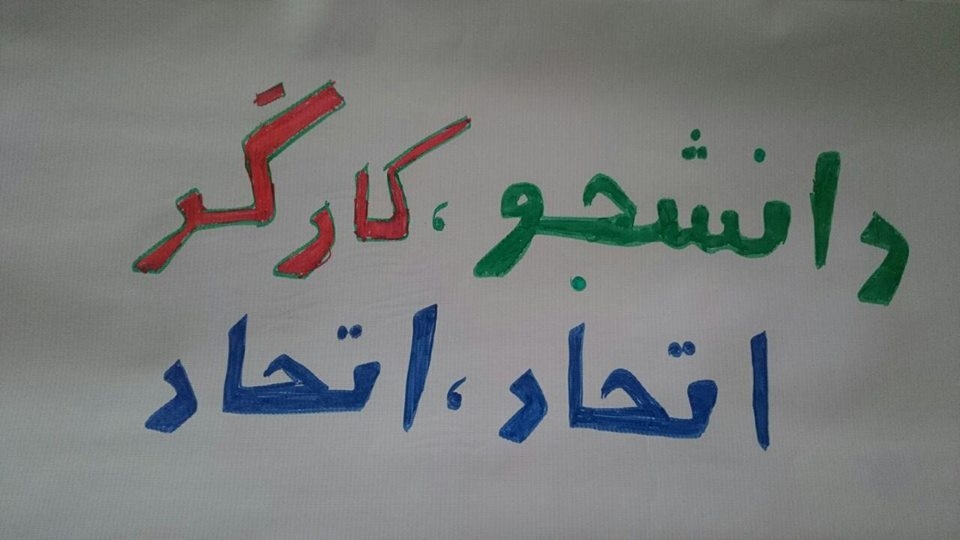 دانشجو، کارگر
اتحاد، اتحاد